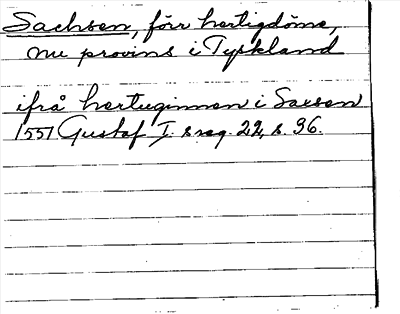 Sachsen, förr hertigdöme,
nu provins i Tyskland
ifrå hertuginnan i Saxsen
1557 Gustaf I. s reg. 22, s. 96.